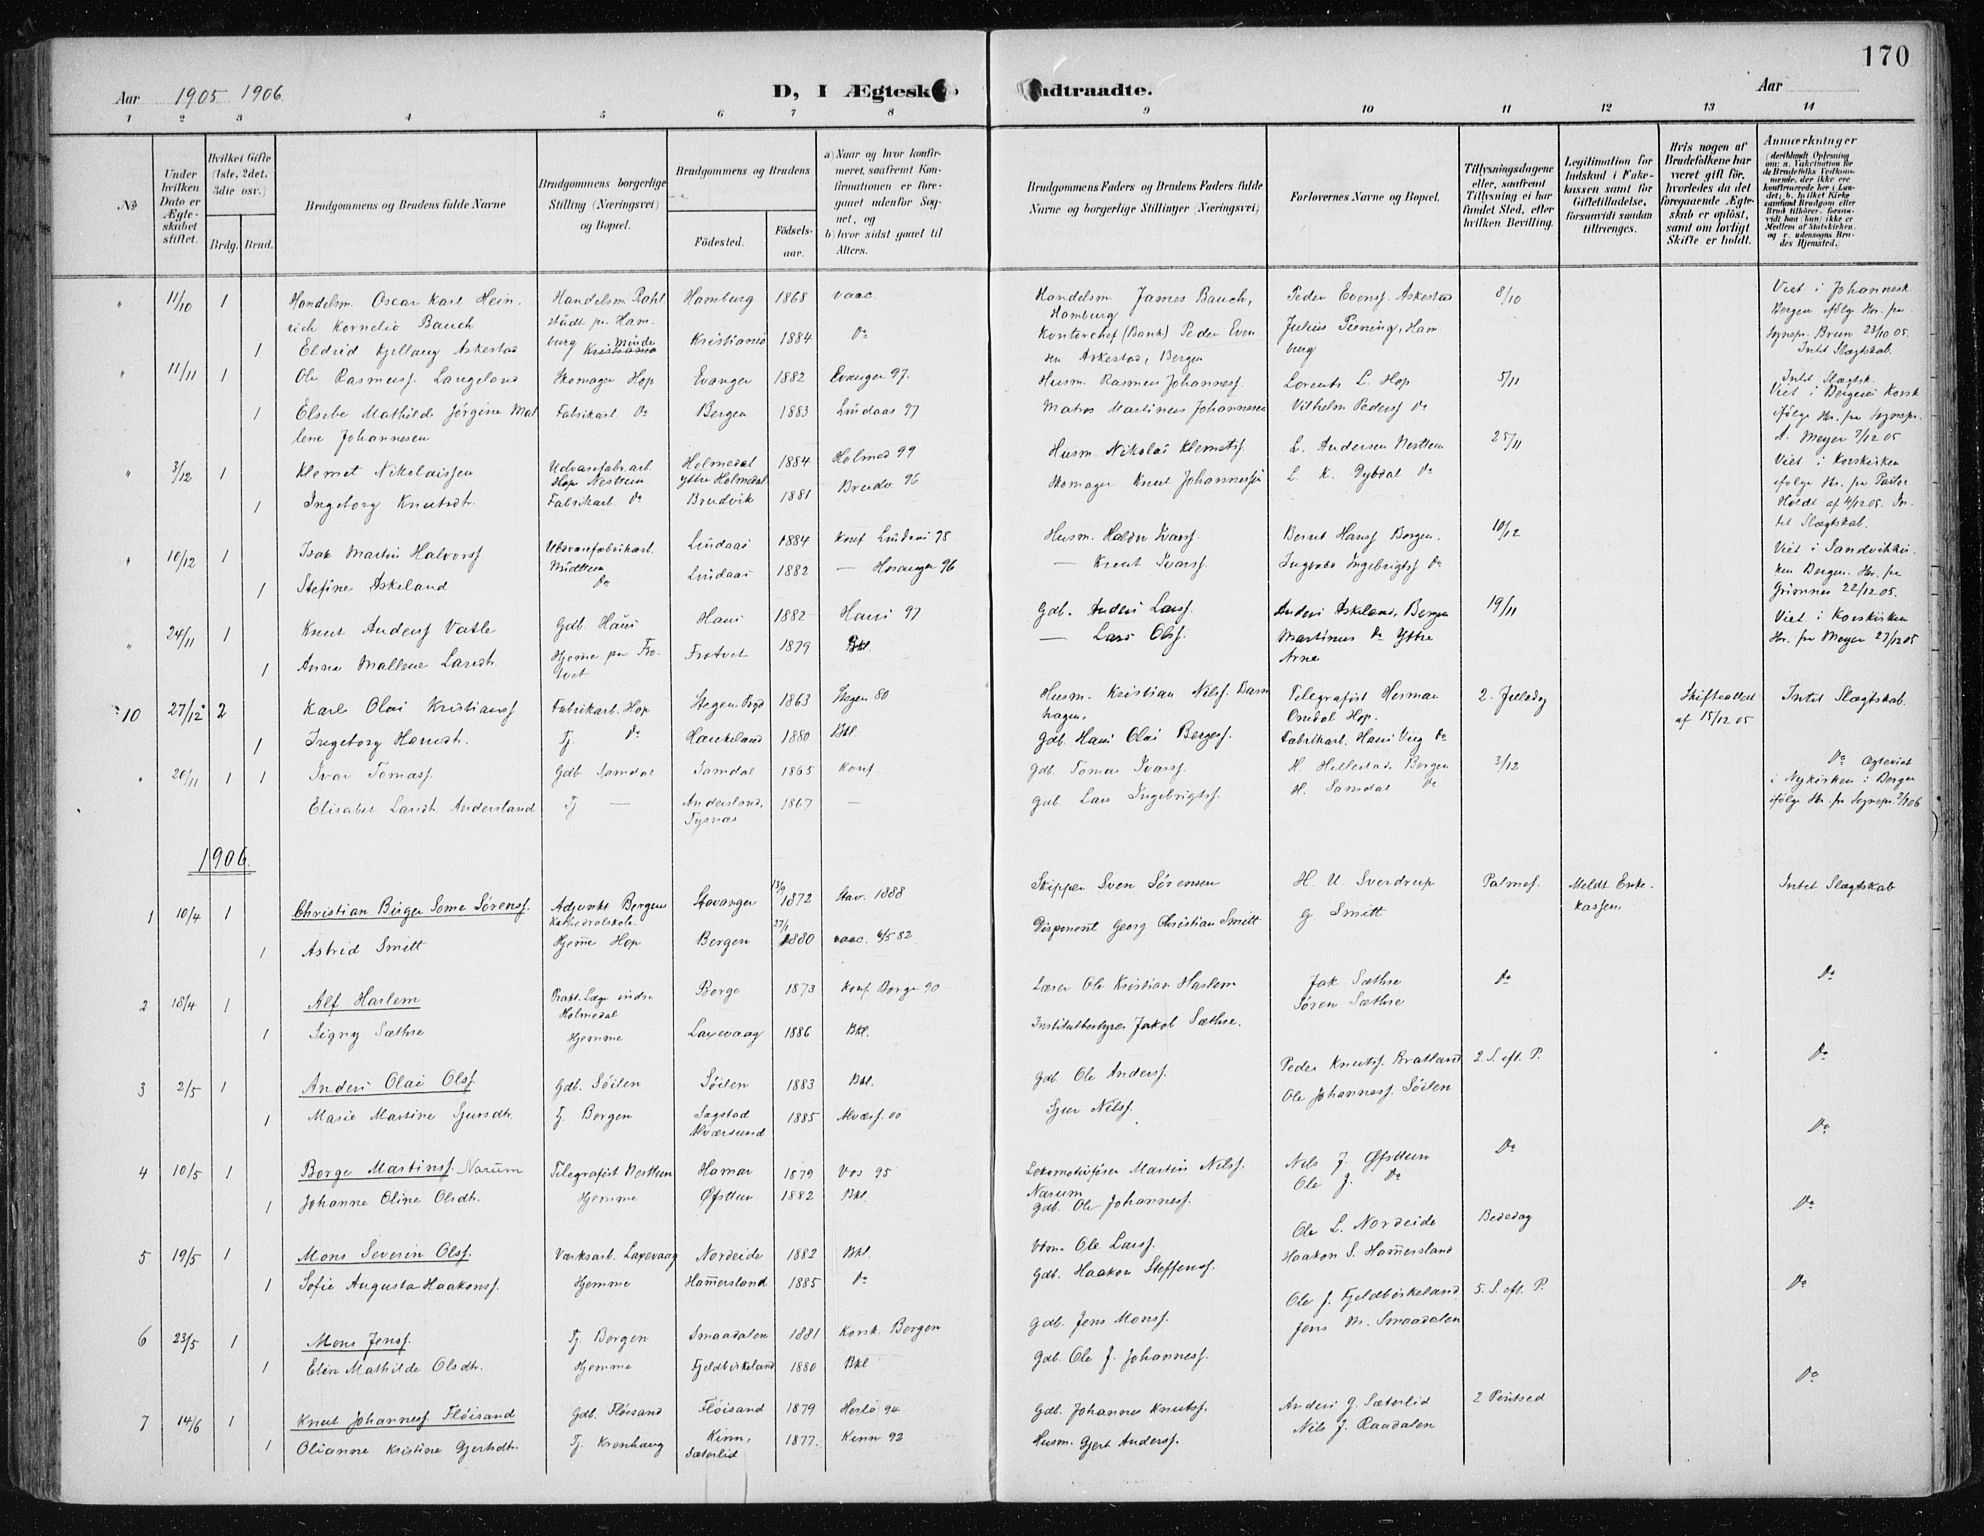 170
Aar 1905 1906
D, I Ægtesk
adtraadte.
Aar
1 2 3 4 5 6 7 8 9 10 11 12 13 14
No
Under hvilken Dato er Ægteskabet stiftet.
Hvilket Gifte (1ste, 2det, 3die osv.)
Brdg. Brud.
Brudgommens og Brudens fulde Navne
Brudgommens borgerlige Stilling (Næringsvei) og Bopæl.
Brudgommens og Brudens
Födested.
Födsels-aar.
a) Naar og hvor konfirmeret, saafremt Konfirmationen er foregaaet udenfor Sognet, og
b) hvor sidst gaaet til Alters.
Brudgommens Faders og Brudens Faders fulde Navne og borgerlige Stillinger (Næringsvei)
Forlovernes Navne og Bopæl.
Tillysningsdagene eller, saafremt Tillysning ei har fundet Sted, efter hvilken Bevilling.
Legitimation for Indskud i Enkekassen samt for Giftetilladelse, forsaavidt saadan tiltrænges.
Hvis nogen af Brudefolkene har været gift før, hvorledes da det foregaaende Ægteskab er oplöst, samt om lovligt Skifte er holdt.
Anmærkninger
" 11/10 1 Handelsm. Oscar Karl Heinrich Kornelio Bauch Handelsm. Hamburg 1868 vacc. Handelsm James Bauch, Hamburg Peder Evens. Askestad 8/10 Viet i Johannesk Bergen ifølge Hr. fra Sognepr. Bruun 23/10 05. Intet Slægtskab.
1 Eldrid Kjellaug Askestad Kristiania 1884 Do Kontorchef (Bank) Peder Evensen Askestad, Bergen Julius Piening, Hamburg
" 11/11 1 Ole Rasmuss. Langeland Skomager Hop Evanger 1882 Evanger 97. Husm. Rasmus Johanness. Lorents L. Hop 5/11 Intet Slægtsk. Viet i Bergens Korsk ifølge Hr. fra Sognepr. A. Meyer 7/12 05
1 Elsebe Mathilde Jørgine Mallene Johannesen Fabrikarb. Do Bergen 1883 Lindaas 97 Matros Martinus Johannesen Vilhelm Peders Do
" 3/12 1 Klemet Nikolaissen Uldvarefabr.arb. Hop Nesttun Holmedal ytre Holmedal 1884 Holmed 99 Husm. Nikolai Klemets. L. Andersen Nesttun 25/11 Viet i Korskirken ifølge Hr. fra Pastor Holdt af 4/12 05. Intet Slægtskab.
1 Ingeborg Knutsdt. Fabrikarb. Do Brudvik 1881 Brudv 96 Skomager Knut Johannessen L. K. Dybdal Do
" 10/12 1 Isak Martin Halvors. Uldvarefabrikarb. Midttun Lindaas 1884 Konf Lindaas 98 Husm. Haldor Ivars. Bernt Hans. Bergen. 10/12 Viet i Sandvikkirken Bergen. Hr. fra Grimnes 22/12 05.
1 Stefine Askeland Do Lindaas 1882 — Hosanger 96 — Knut Ivars. Ingvald Ingebrigts. Do
" 24/11 1 Knut Anders. Vatle Gdb. Haus Haus 1882 Haus 97 Gdb. Anders Lars. Anders Askeland, Bergen 19/11 Viet i Korskirken Hr. fra Meyer 27/12 05
1 Anna Mallene Larsdt. Hjemme paa Frotvet Frotvet 1879 Bkl. — Lars Ols. Martinus Do Ytre Arne
10 27/12 2 Karl Olai Kristians. Fabrikarb. Hop Stegen 1863 Stegen 80 Husm. Kristian Nils. Telegrafist Herman Onsdal Hop. 2. Juledag Skifteattest af 15/12 05 Intet Slægtskab.
1 Ingeborg Hansdt. Tj. Do Haukeland 1880 Bkl. Gdb. Hans Olai Berges. Fabrikarb. Hans Do
" 20/11 1 1 Ivar Tomas. Gdb Samdal Samdal 1865 Konf. Gdb. Tomas Ivars. H. Hillestad Bergen 3/12 Do Ægteviet i Nykirken i Bergen ifølge Hr. fra Sognepr.
Elisabet Larsdt. Andersland Tj — Andersland, Tysnæs 1867 — Gdb Lars Ingebrigts. H. Samdal Do
1906.
1 10/4 1 Christian Birger Some Sørens. Adjunkt Bergens Kathedralskole Stavanger 13/9 1872 Stav. 1888 Skipper Sven Sørensen H. U. Sverdrup Palmes. Meldt Enkekassen. Intet Slægtskab
1 Astrid Smitt Hjeme Hop Bergen 27/1 1880 vacc. 6/5 82 Disponent Georg Christian Smitt G. Smitt
2 18/4 1 Alf Harlem Prakt. Læge indre Holmedal Borge 1873 Konf Borge 90 Lærer Ole Kristian Haslem Jak. Sæthre Do Do
1 Signy Sæthre Hjemme Laxevaag 1886 Bkl. Institutbestyrer Jakob Sæthre. Søren Sæthre
3 2/5 1 Anders Olai Ols. Gdb. Söilen Söilen 1883 Bkl. Gdb. Ole Anders. Peder Knuts. Bratland 2. S. eft. P. Do
1 Marie Martine Sjursdt. Tj. Bergen Sagstad Alversund 1885 Alvers. 00 Sjur Nils. Ole Johanness. Söilen
4 10/5 1 Borge Martins. Narum Telegrafist Nesttun Hamar 1879 Vos 95 Lokomotivfører Martin Nils. Narum Nils J. Øfsttun Do Do
1 Johanne Oline Olsdt. Hjemme Øfsttun 1882 Bkl. Gdb. Ole Johannes. Ole J. Do
5 19/5 1 Mons Severin Ols. Værksarb. Laxevaag Nordeide 1882 Bkl. Ole Lars. Ole L. Nordeide Bededag Do
1 Sofie Augusta Haakons. Hjemme Hamersland 1885 Do Gdb. Haakon Steffens. Haakon S. Hamersland
6 23/5 1 Mons Jens. Tj. Bergen Smaadalen 1881 Korsk. Bergen Gdb. Jens Mons. Ole J. Fjeldbirkeland 5. S. eft. P. Do
1 Elen Mathilde Olsdt. Hjemme Fjeldbirkeland 1880 Bkl Gdb. Ole J. Johannes. Jens M. Smaadalen
7 14/6 1 Knut Johanness. Fløisand Gdb. Fløisand Fløisand 1879 Herlø 94 Gdb. Johannes Knuts. Anders G. Sæterlid 2 Pintsed Do
1 Olianne Kristine Gjertsdt. Tj. Kronhaug Kinn, Sæterlid 1877. Kinn 92 Husm. Gjert Anders. Nils J. Raadalen